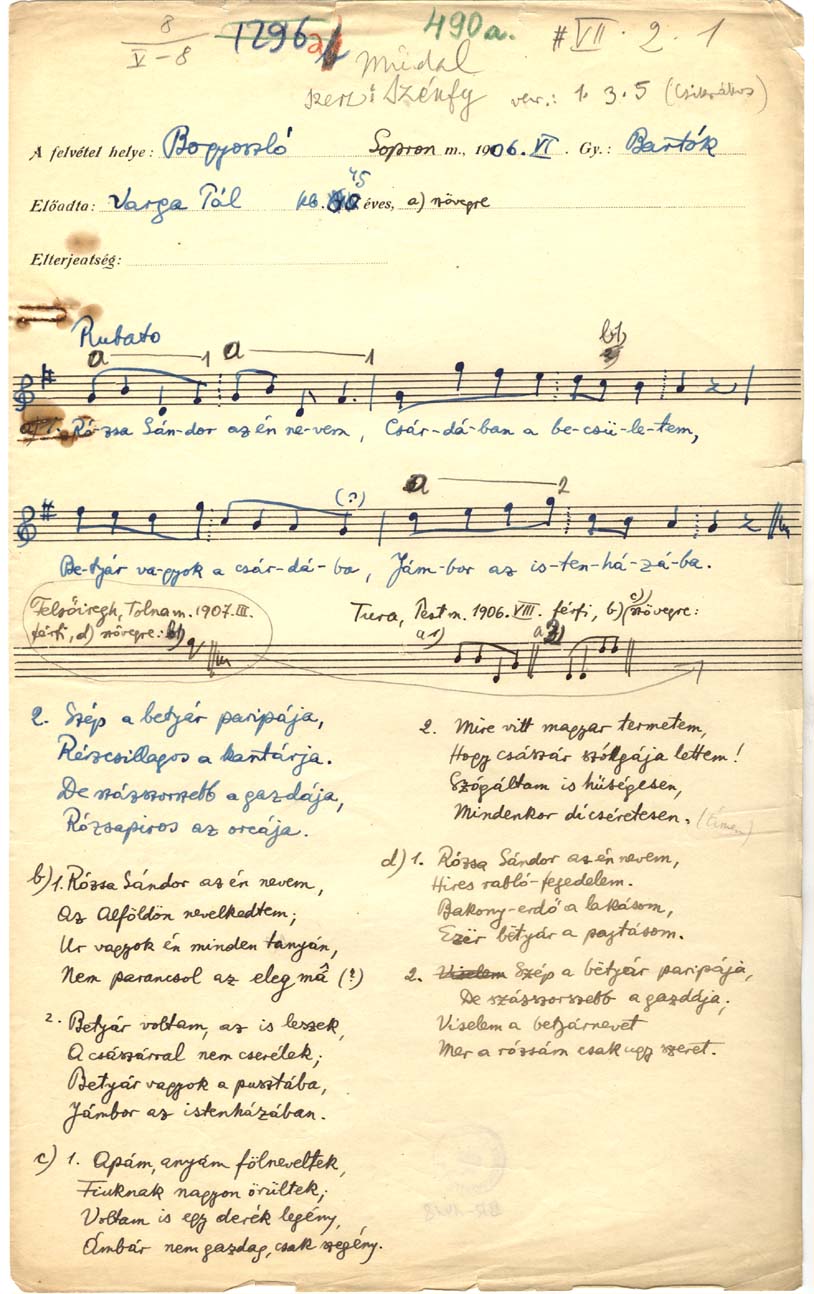 8
V–8
1296
490a.
# VII · 2 · 1
Műdal
szerz: Szénfy var.: 1. 3. 5
A felvétel helye: Bogyoszló Sopron m., 1906. VI. Gy.: Bartók
45
Előadta: Varga Pál kb. éves, a) szövegre
Elterjeatség:
Rubato
a 1 a 1
a) 1. Rózsa Sán-dor az én ne-vem, Csár-dá-ban a be-csü-le-tem,
(?) a 2
Be-tyár va-gyok a csár-dá-ba, Jám-bor az is-ten-há-zá-ba.
Felsőiregh, Tolna m. 1907. III.
férfi, d) szövegre:
Tura, Pest m. 1906. VIII. férfi, b) c) szövegre:
2. Szép a betyár paripája,
Rézcsillagos a kantárja.
De százszorszebb a gazdája,
Rózsapiros az orcája.
b) 1. Rózsa Sándor az én nevem,
Az Alföldön nevelkedtem;
Ur vagyok én minden tanyán,
Nem parancsol az eleg mâ (?)
2. Betyár voltam, az is leszek,
A császárral nem cserélek;
Betyár vagyok a pusztába,
Jámbor az istenházában.
c) 1. Apám, anyám fölneveltek,
Fiuknak nagyon örültek;
Voltam is egy derék legény,
Ámbár nem gazdag, csak szegény.
2. Mire vitt magyar termetem,
Hogy császár szólgája lettem!
Szógáltam is hűségesen,
Mindenkor dicséretesen.
d) 1. Rózsa Sándor az én nevem,
Hires rabló-fejedelem.
Bakony-erdő a lakásom,
Ezër bëtyár a pajtásom.
2. Szép a bëtyár paripája,
De százszorszebb a gazdája;
Viselem a betyárnevet
Mer a rózsám csak ugy szeret.